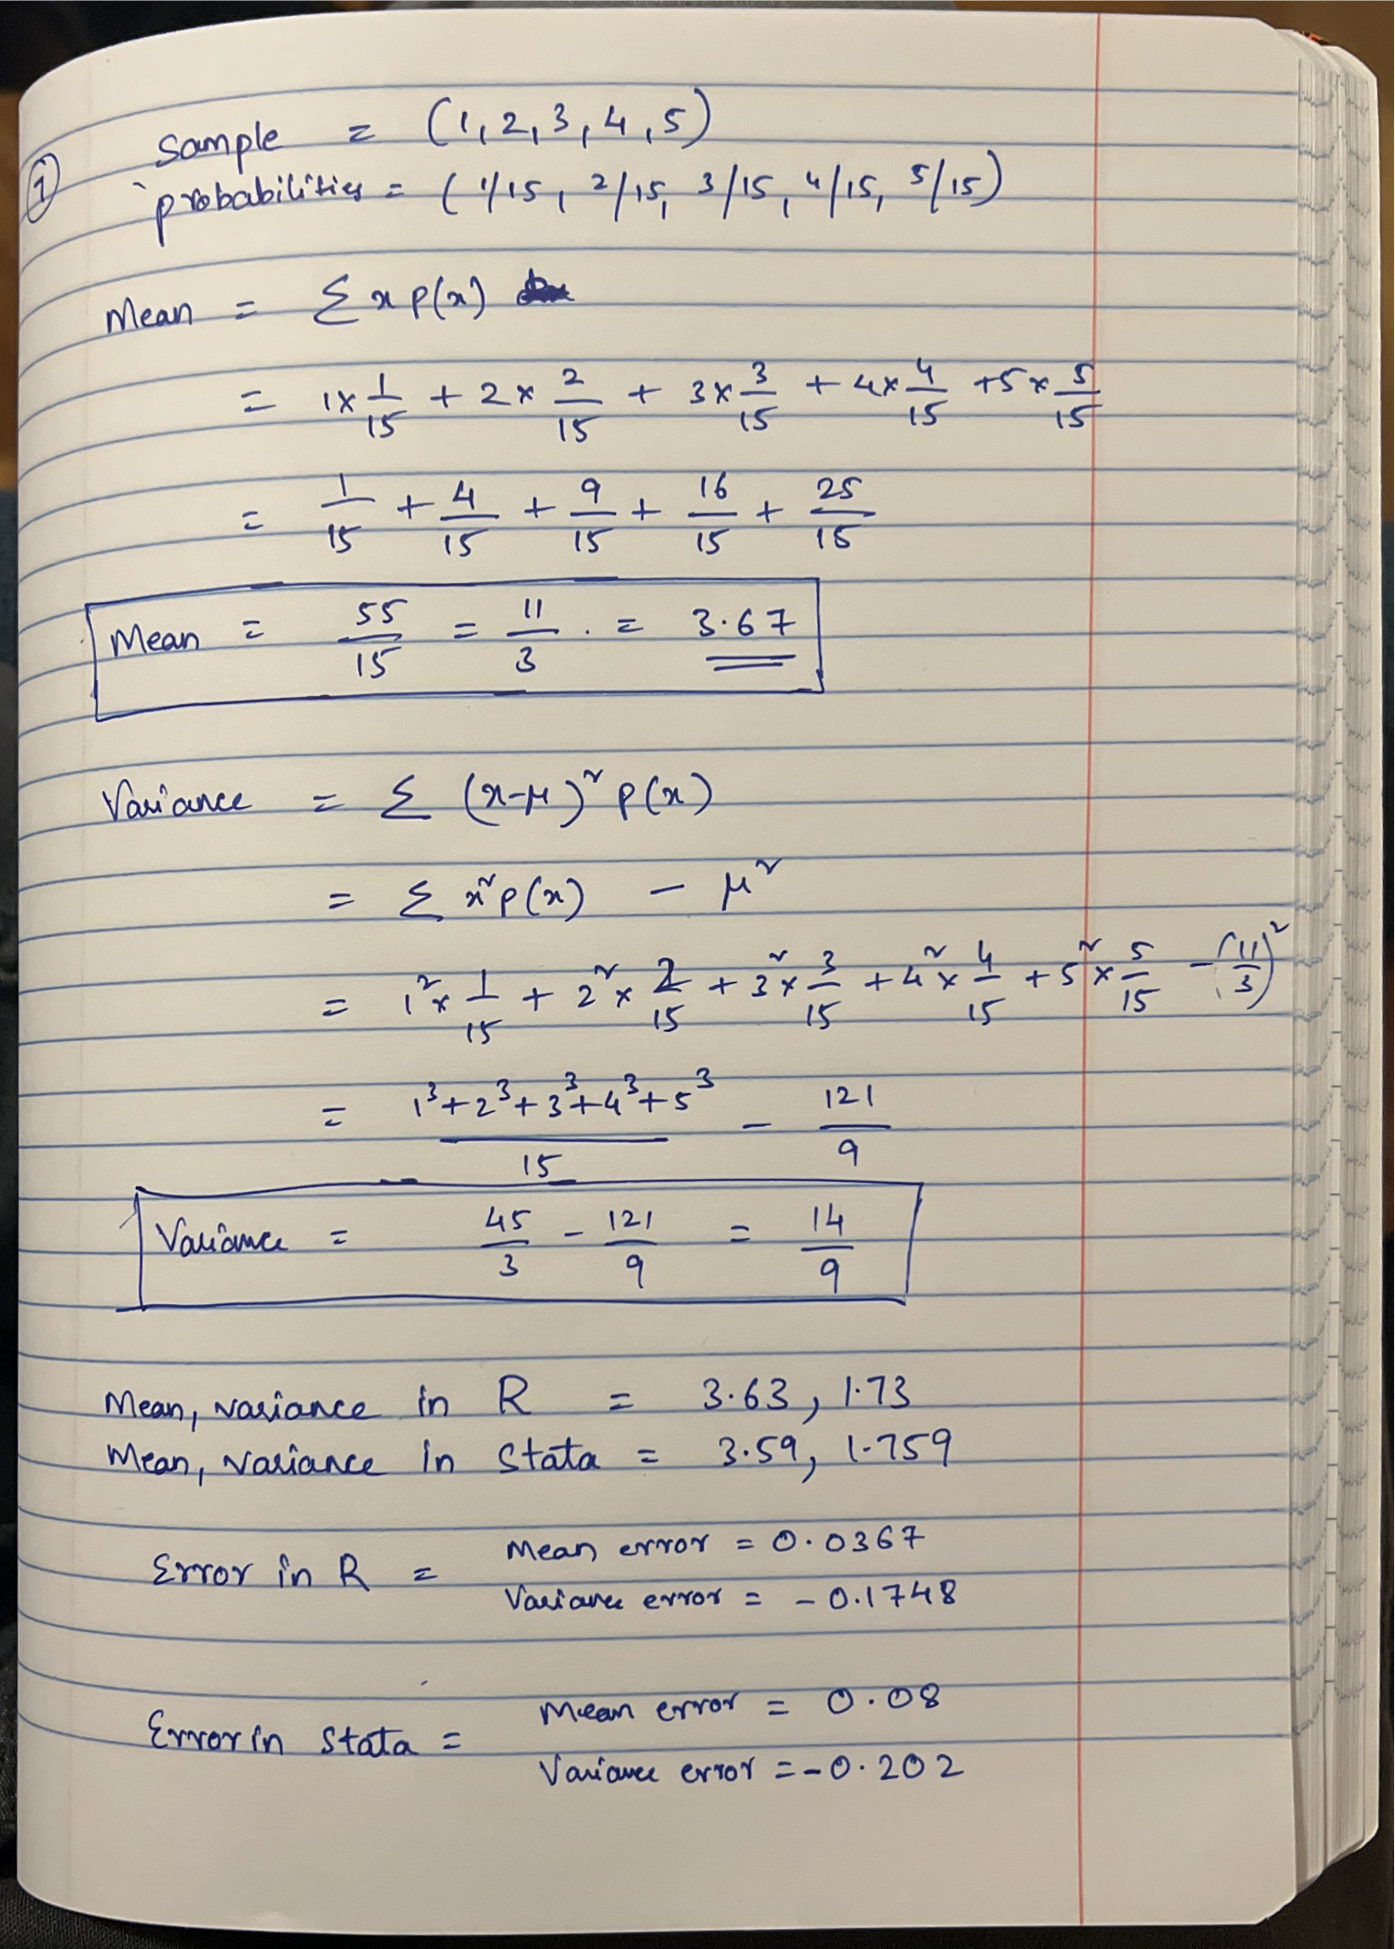 ① Sample = (1, 2, 3, 4, 5)
probabilities = (1/15, 2/15, 3/15, 4/15, 5/15)
Mean = Σ x p(x)
= 1 × 1/15 + 2 × 2/15 + 3 × 3/15 + 4 × 4/15 + 5 × 5/15
= 1/15 + 4/15 + 9/15 + 16/15 + 25/15
Mean = 55/15 = 11/3 . = 3.67
Variance = Σ (x-μ)² p(x)
= Σ x² p(x) - μ²
= 1² × 1/15 + 2² × 2/15 + 3² × 3/15 + 4² × 4/15 + 5² × 5/15 - (11/3)²
= (1³+2³+3³+4³+5³)/15 - 121/9
Variance = 45/3 - 121/9 = 14/9
Mean, variance in R = 3.63, 1.73
Mean, variance in Stata = 3.59, 1.759
Error in R = Mean error = 0.0367
Variance error = -0.1748
Error in Stata = Mean error = 0.08
Variance error = -0.202